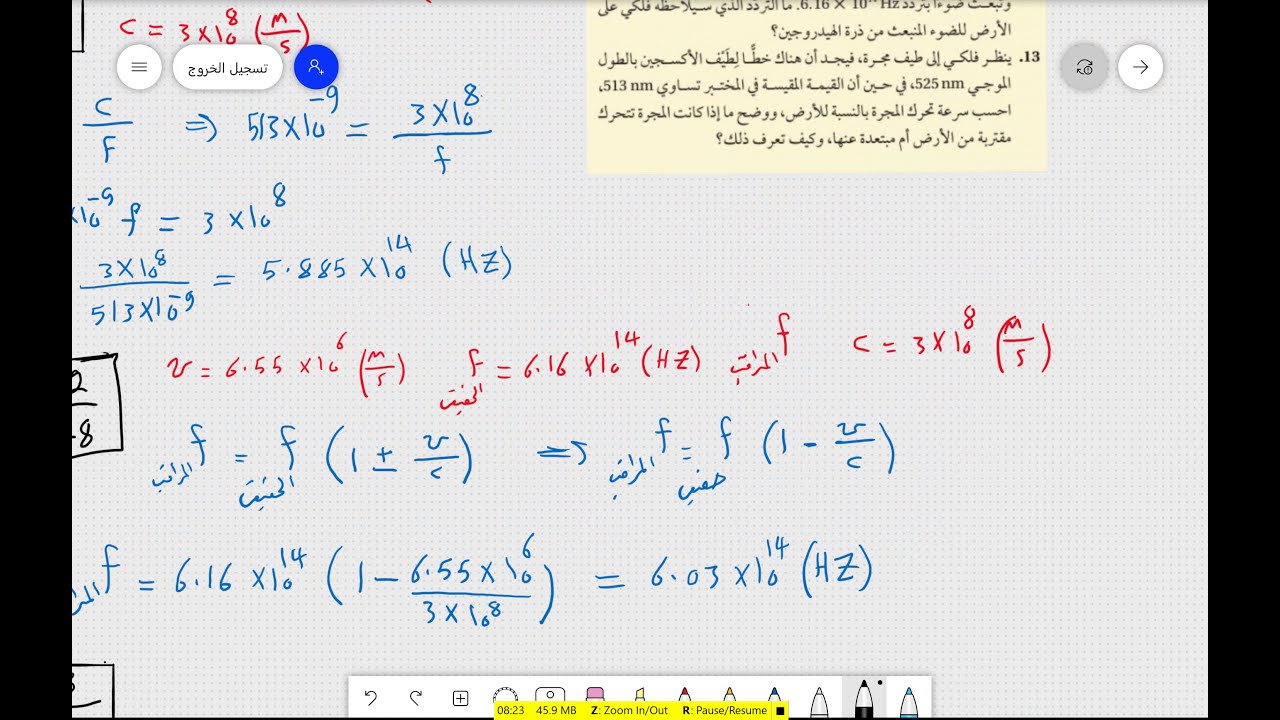 c = 3×10⁸ (m/s)
وتبعث ضوءًا بتردد 6.16 × 10¹⁴ Hz. ما التردد الذي سيلاحظه فلكي على
الأرض للضوء المنبعث من ذرة الهيدروجين؟
13. ينظر فلكي إلى طيف مجرة، فيجد أن هناك خطًّا لِطَيْف الأكسجين بالطول
الموجي 525 nm، في حين أن القيمة المقيسة في المختبر تساوي 513 nm،
احسب سرعة تحرك المجرة بالنسبة للأرض، ووضح ما إذا كانت المجرة تتحرك
مقتربة من الأرض أم مبتعدة عنها، وكيف تعرف ذلك؟
تسجيل الخروج
c/f ⇒ 513×10⁻⁹ = 3×10⁸/f
×10⁻⁹ f = 3×10⁸
3×10⁸/513×10⁻⁹ = 5.885×10¹⁴ (HZ)
v = 6.55×10⁶ (m/s) f = 6.16×10¹⁴ (HZ) f المراقب c = 3×10⁸ (m/s)
f المراقب = f (1 ± v/c) ⇒ f المراقب = f (1 - v/c)
f = 6.16×10¹⁴ (1 - 6.55×10⁶/3×10⁸) = 6.03×10¹⁴ (HZ)
08:23 45.9 MB Z: Zoom In/Out R: Pause/Resume